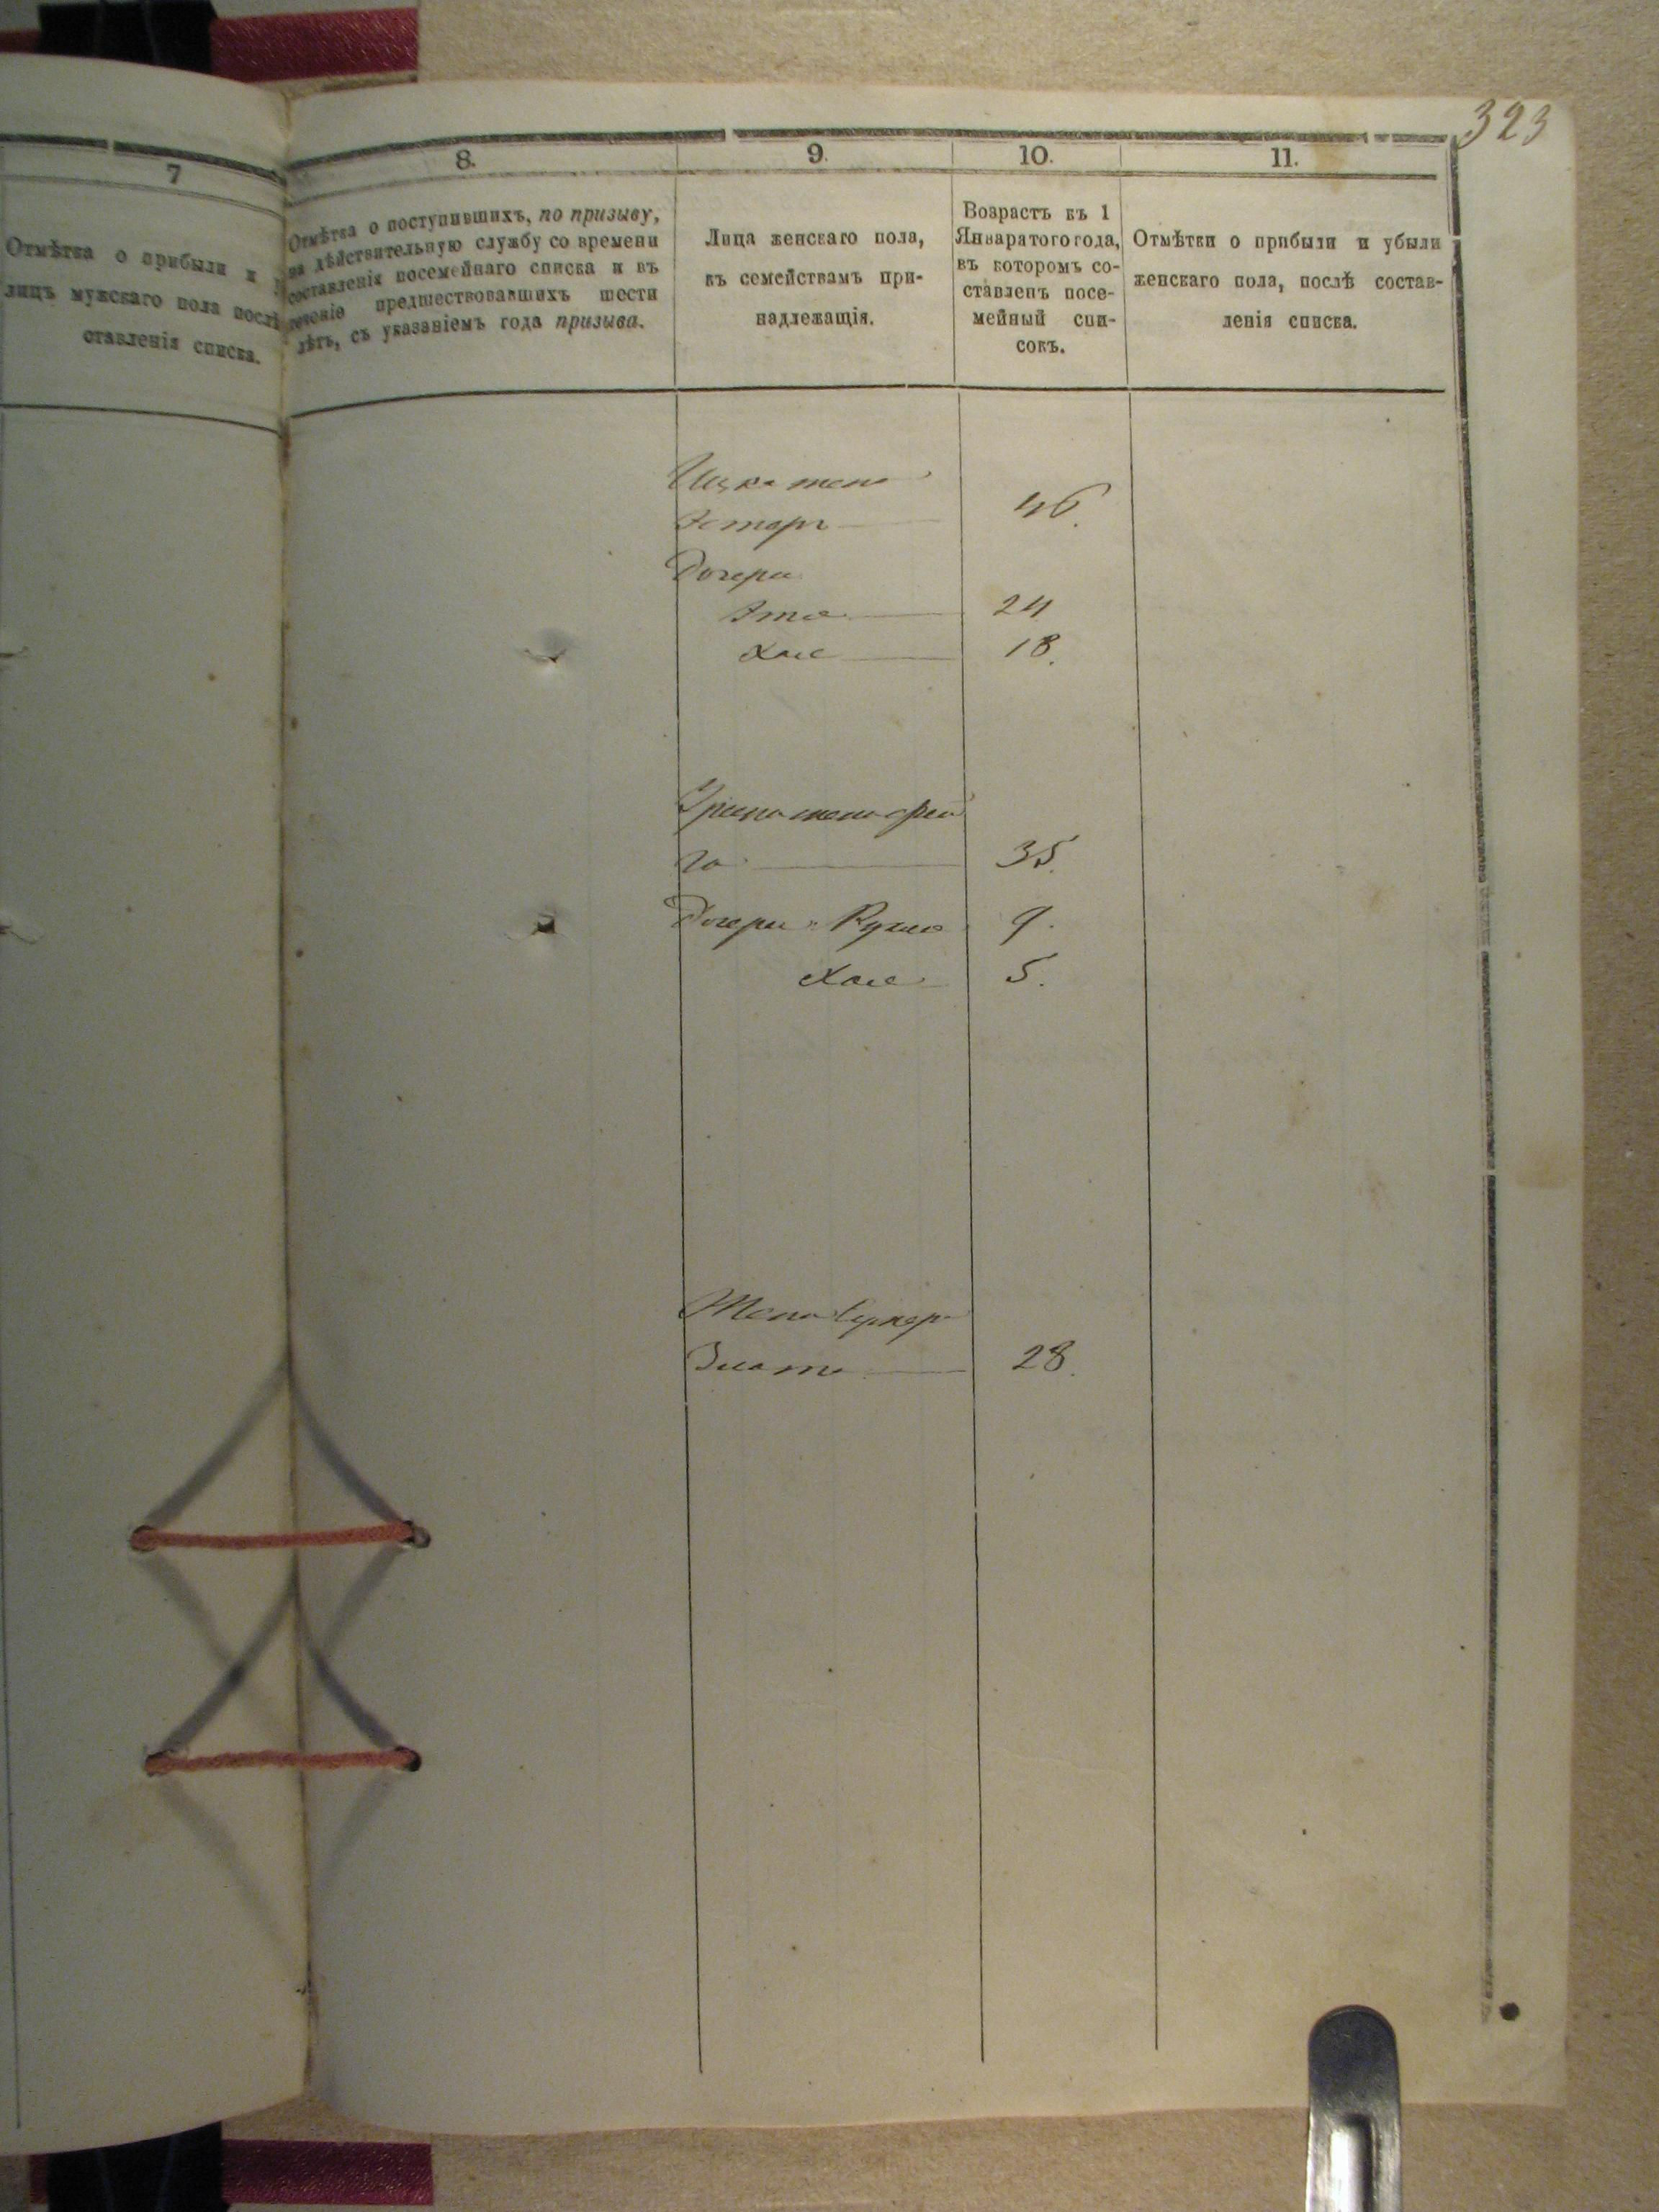 323
7
Отмѣтка о прибыли и
лицъ мужскаго пола послѣ
ставленія списка.
8.
Отмѣтка о поступившихъ, по призыву,
на дѣйствительную службу со времени
составленія посемейнаго списка и въ
теченіе предшествовавшихъ шести
лѣтъ, съ указаніемъ года призыва.
9.
Лица женскаго пола,
къ семействамъ при-
надлежащія.
10.
Возрастъ къ 1
Января того года,
въ которомъ со-
ставленъ посе-
мейный спи-
сокъ.
11.
Отмѣтки о прибыли и убыли
женскаго пола, послѣ состав-
ленія списка.
Ицка жена
Эстеръ 46.
Дочери
Этя 24
Хае 18.
жена Фей
га 35.
Дочери Рухле 9.
Хае 5.
Жена
Злата 28.